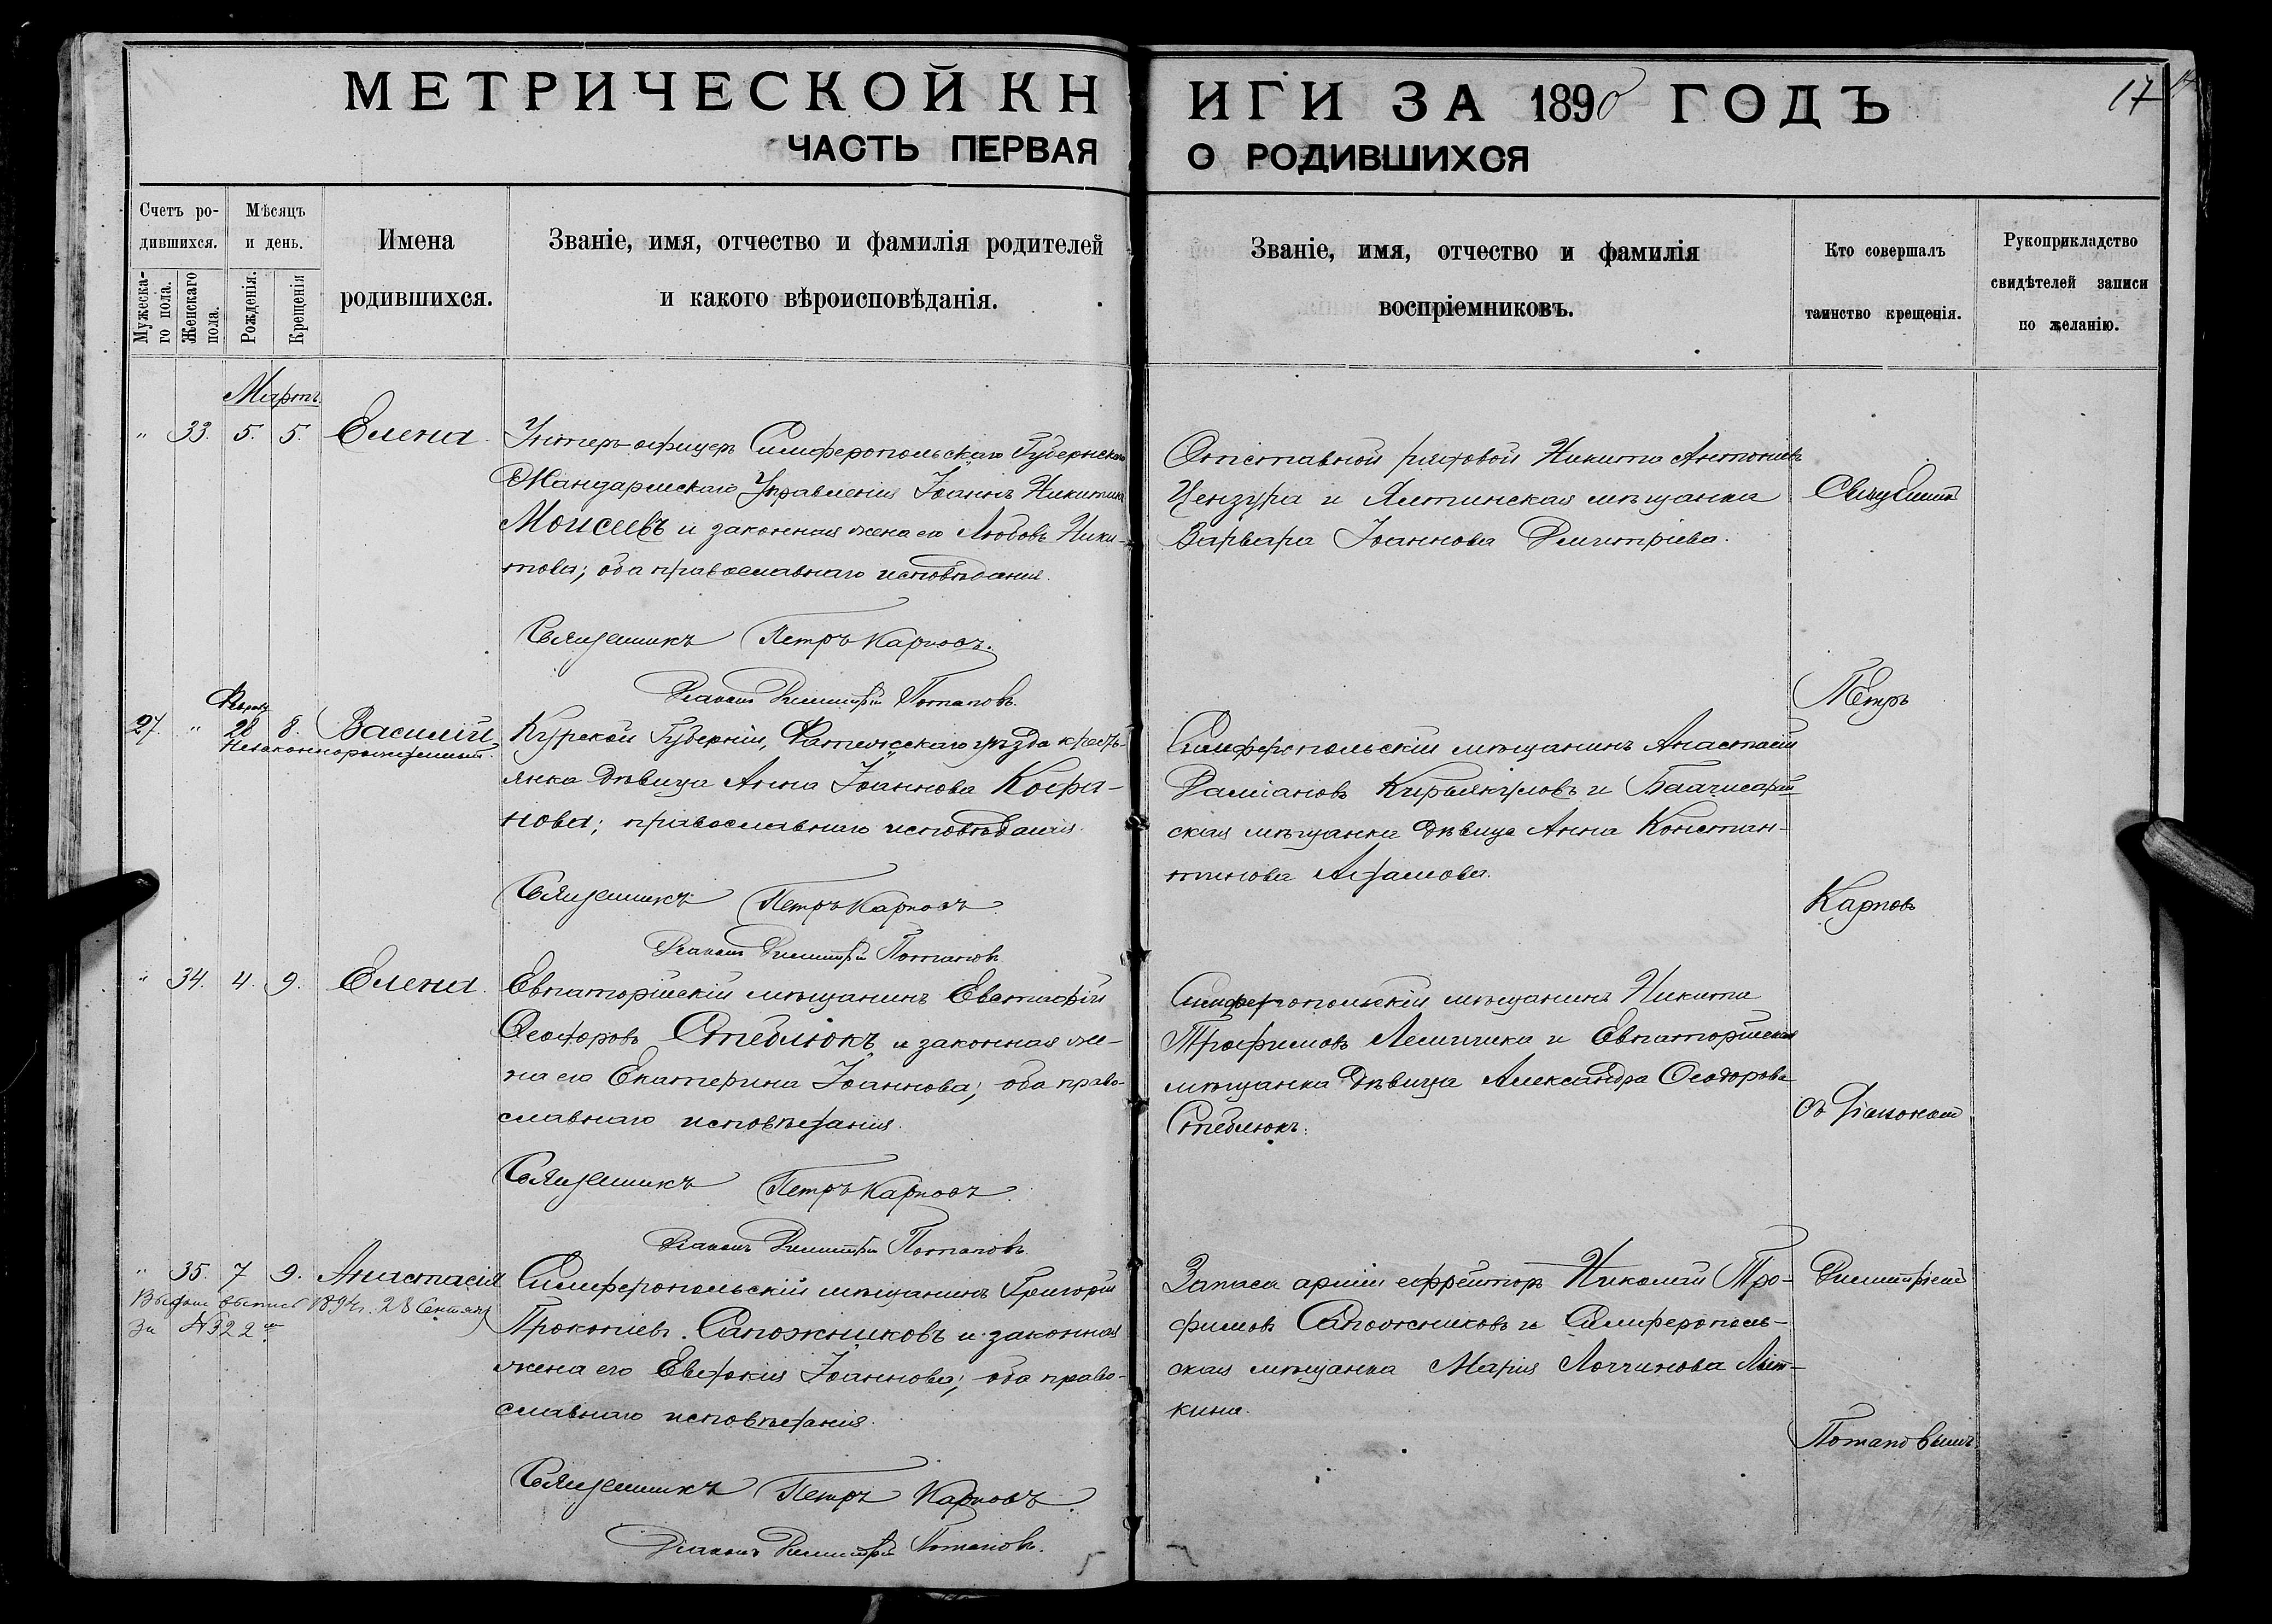 МЕТРИЧЕСКОЙ КНИГИ ЗА 1890 ГОДЪ
17
ЧАСТЬ ПЕРВАЯ О РОДИВШИХСЯ
Счетъ ро-
дившихся.
Мужеска-
го пола.
Женскаго
пола.
Мѣсяцъ
и день.
Рожденія.
Крещенія
Имена
родившихся.
Званіе, имя, отчество и фамилія родителей
и какого вѣроисповѣданія.
Званіе, имя, отчество и фамилія
воспріемниковъ.
Кто совершалъ
таинство крещенія.
Рукоприкладство
свидѣтелей записи
по желанію.
Мартъ
" 33. 5. 5. Елена.
Унтеръ-офицеръ Симферопольскаго Губернскаго
Жандармскаго Управленія Іоаннъ Никитинъ
Моисеевъ и законная жена его Любовь Ники-
това; оба православнаго исповѣданія.
Священникъ Петръ Карповъ.
Діаконъ Димитрій Потаповъ.
Отставной рядовой Никита Антоніевъ
Цензура и Ялтинская мѣщанка
Варвара Іоаннова Димитріева.
Священникъ
Петръ
Карповъ
съ Діакономъ
Димитріемъ
Потаповымъ.
27. " 28 8. Василій
Незаконнорожденный.
Курской Губерніи, Фатежскаго уѣзда кресть-
янка дѣвица Анна Іоаннова Кофа-
нова; православнаго исповѣданія.
Священникъ Петръ Карповъ
Діаконъ Димитрій Потаповъ
Симферопольскій мѣщанинъ Анастасій
Даміановъ и
ская мѣщанка дѣвица Анна Констан-
тинова
" 34. 4. 9. Елена.
Евпаторійскій мѣщанинъ Евстафій
Ѳеодоровъ Стеблюкъ и законная же-
на его Екатерина Іоаннова; оба право-
славнаго исповѣданія.
Священникъ Петръ Карповъ.
Діаконъ Димитрій Потаповъ.
Симферопольскій мѣщанинъ Никита
Трофимовъ и Евпаторійская
мѣщанка дѣвица Александра Ѳеодорова
Стеблюкъ.
" 35. 7 9. Анастасія
Выдана выпись 1894 г. 28 Сентяб
За № 322
Симферопольскій мѣщанинъ Григорій
Прокопіевъ Сапожниковъ и законная
жена его Евдокія Іоаннова; оба право-
славнаго исповѣданія.
Священникъ Петръ Карповъ.
Діаконъ Димитрій Потаповъ.
Запаса арміи ефрейторъ Николай Тро-
фимовъ Сапожниковъ и Симферополь-
ская мѣщанка Марія Логгинова Лыт-
кина.